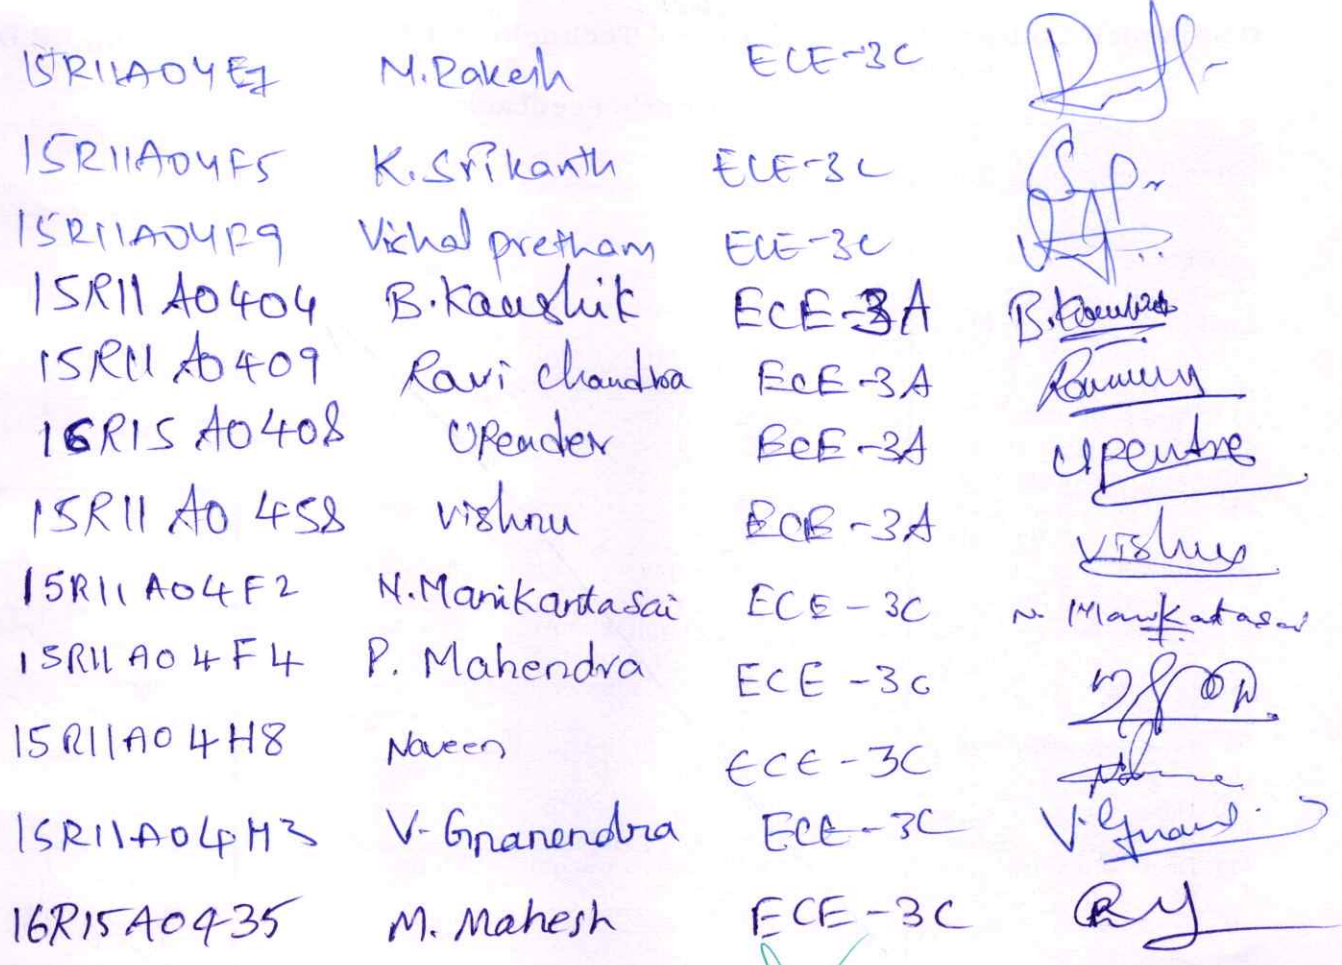 15R11A04E7 M.Rakesh ECE-3C
15R11A04F5 K.Srikanth ECE-3C
15R11A04F9 Vishal pretham ECE-3C
15R11A0404 B.Kaushik ECE-3A B.Kaushik
15R11A0409 Ravi Chandra ECE-3A
16R15A0408 Upender ECE-3A Upendra
15R11A0458 Vishnu ECE-3A Vishnu
15R11A04F2 N.Manikantasai ECE-3C N.Manikatasai
15R11A04F4 P. Mahendra ECE-3C
15R11A04H8 Naveen ECE-3C
15R11A04H3 V. Gnanendra ECE-3C
16R15A0435 M. Mahesh ECE-3C